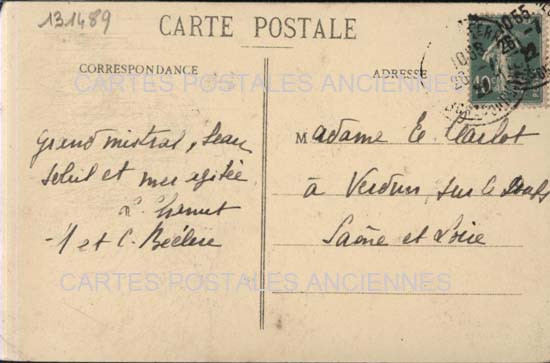 13.1489
CARTE POSTALE
CORRESPONDANCE
ADRESSE
CARTES POSTALES ANCIENNES
Grand mistral, beau
soleil et mer agitée
et C.
Madame E. Carlot
à Verdun sur le Doubs
Saône et Loire
CARTES POSTALES ANCIENNES